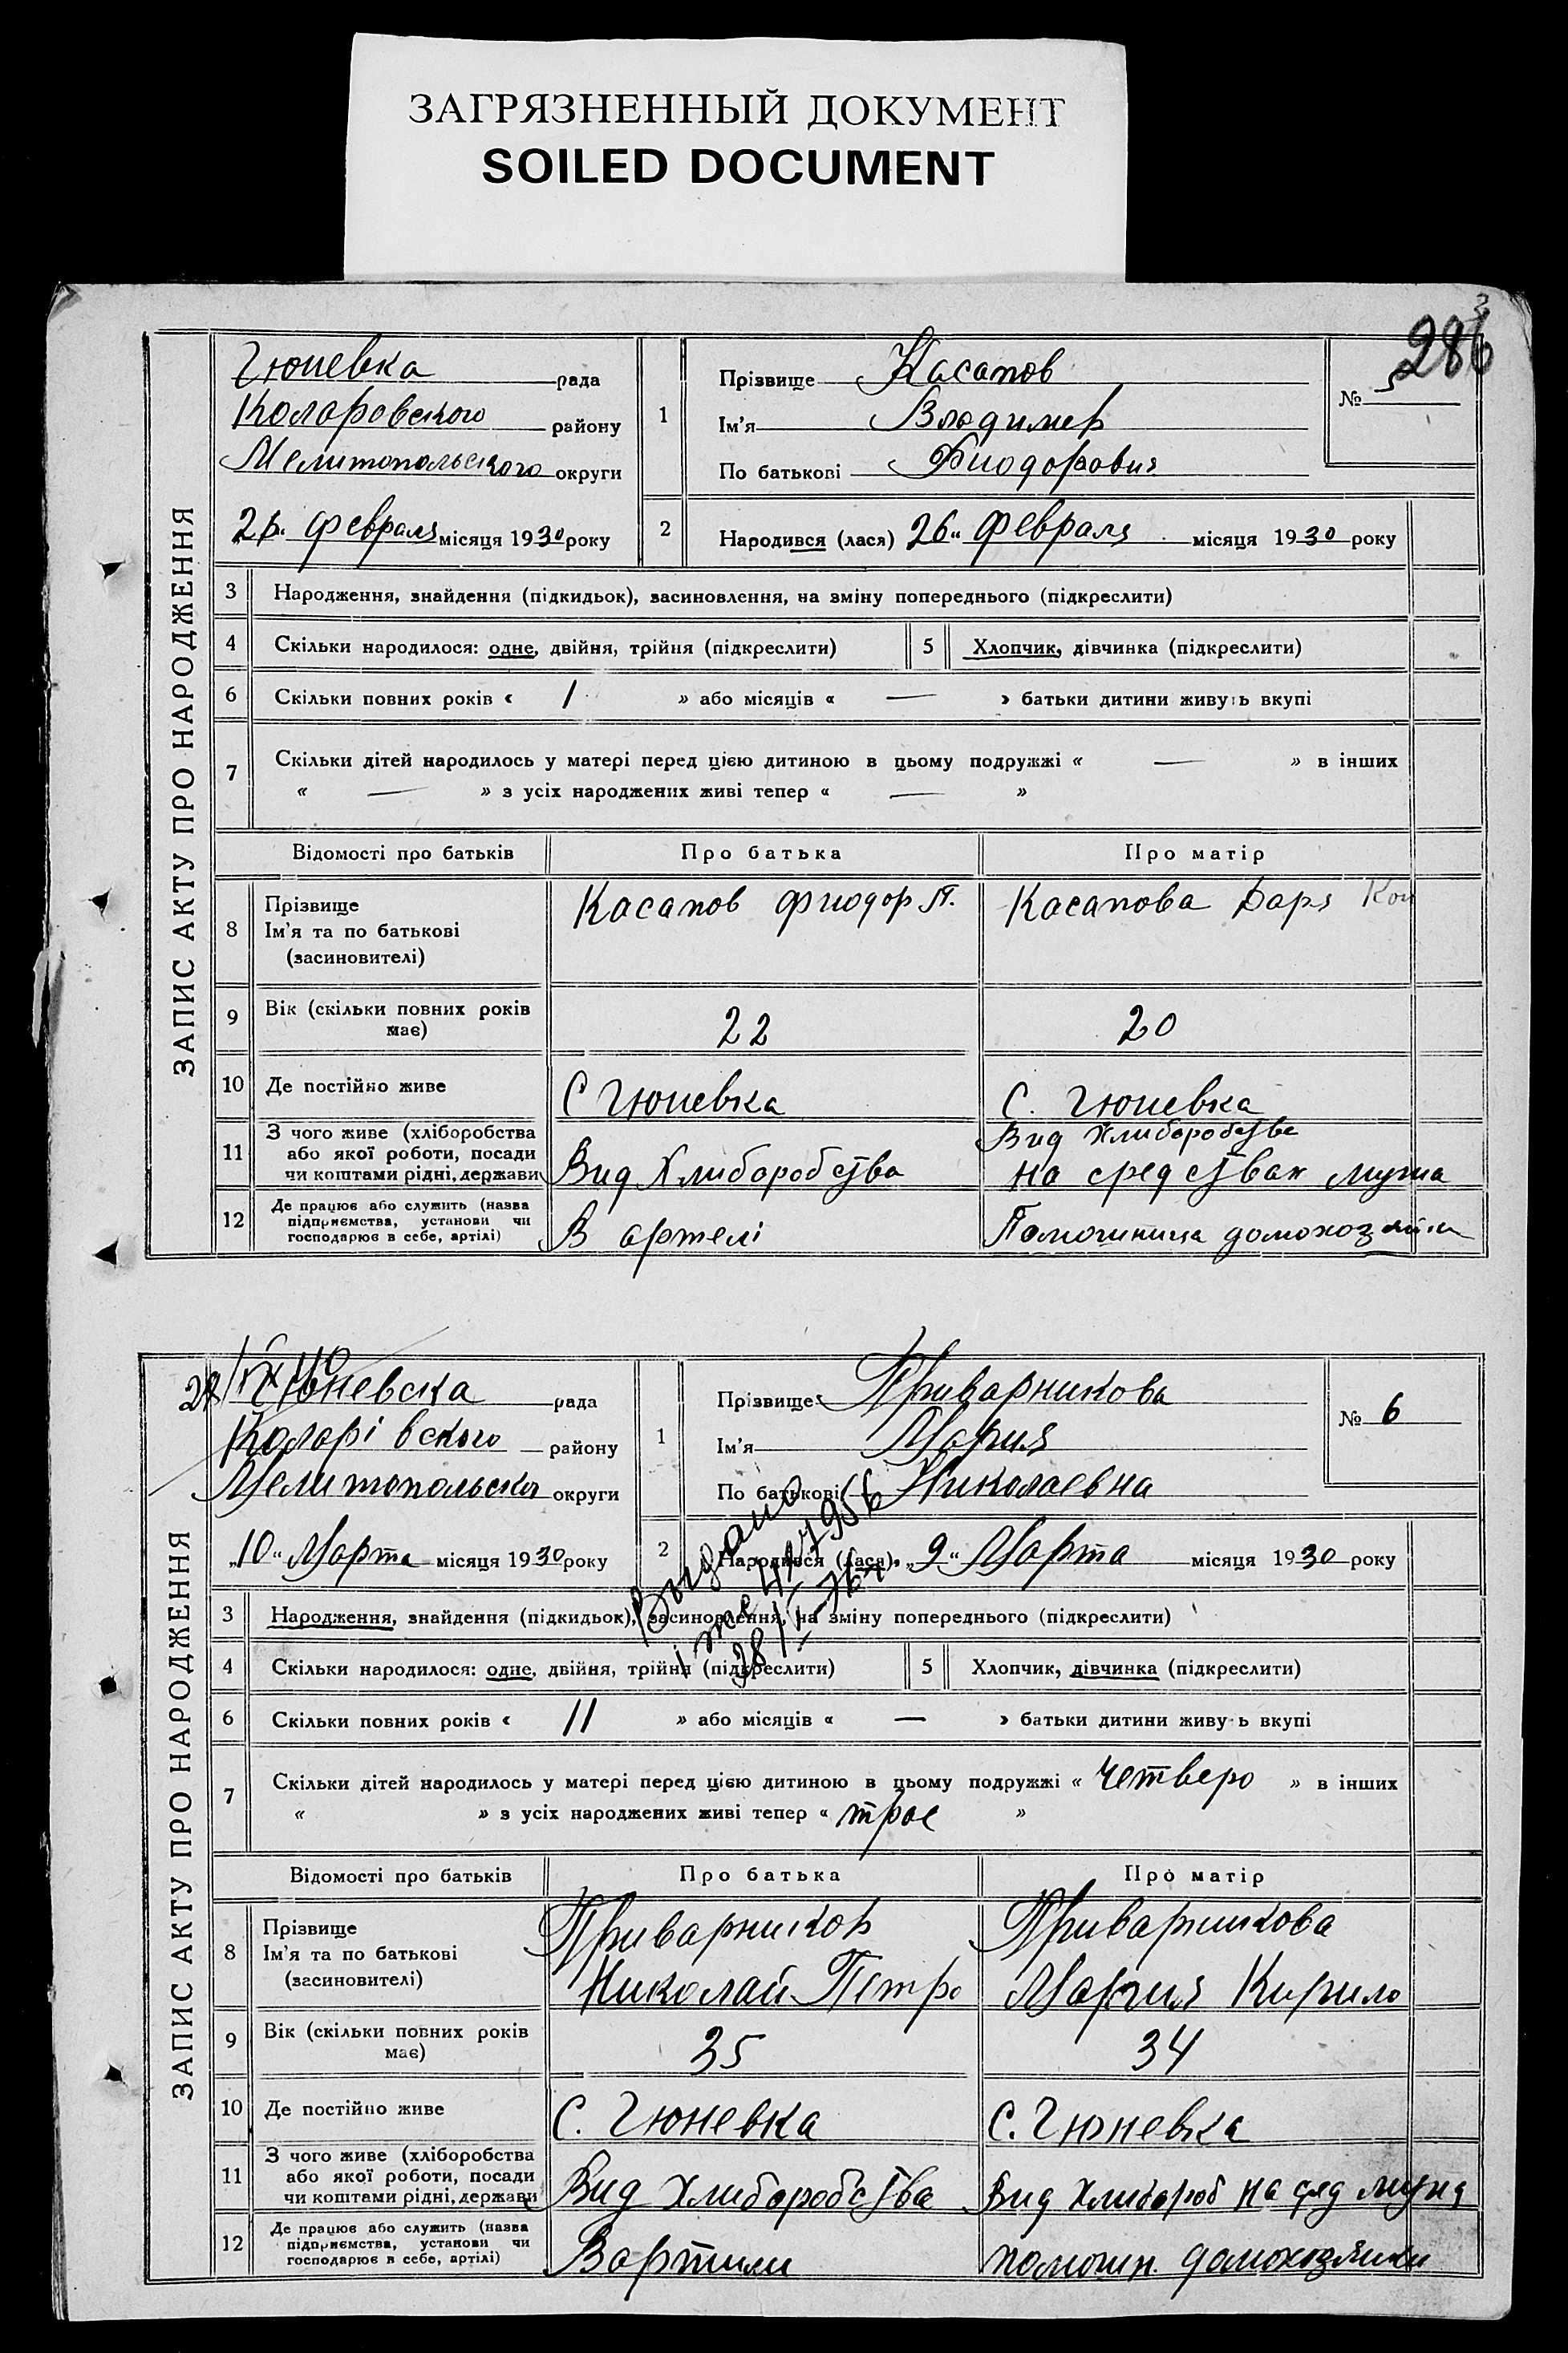 ЗАГРЯЗНЕННЫЙ ДОКУМЕНТ
SOILED DOCUMENT
286
ЗАПИС АКТУ ПРО НАРОДЖЕННЯ
Гюневка рада
Коларовского району
Мелитопольского округи
26 " Февраля місяця 1930 року
1 Прізвище Касапов
Ім'я Владимер
По батькові Фиодорович
№ 5
2 Народився (лася) 26 " Февраля місяця 1930 року
3 Народження, знайдення (підкидьок), засиновлення, на зміну попереднього (підкреслити)
4 Скільки народилося: одне, двійня, трійня (підкреслити) 5 Хлопчик, дівчинка (підкреслити)
6 Скільки повних років « 1 » або місяців « — » батьки дитини живуть вкупі
7 Скільки дітей народилось у матері перед цією дитиною в цьому подружжі « — » в інших
« — » з усіх народжених живі тепер « — »
Відомості про батьків Про батька Про матір
8 Прізвище
Ім'я та по батькові
(засиновителі)
Касапов Фиодор П. Касапова Даря Кон
9 Вік (скільки повних років
має)
22 20
10 Де постійно живе С Гюневка С. Гюневка
11 З чого живе (хліборобства
або якої роботи, посади
чи коштами рідні, держави
Вид Хлиборобства Вид Хлиборобства
на средствах мужа
12 Де працює або служить (назва
підприємства, установи чи
господарює в себе, артілі)
В артелі Помошница домохозяйки
ЗАПИС АКТУ ПРО НАРОДЖЕННЯ
Гюневска рада
Коларівского району
Мелитопольска округи
„ 10 " Марта місяця 1930 року
1 Прізвище Приварникова
Ім'я Мария
По батькові Николаевна
№ 6
2 Народився (лася) „ 9 " Марта місяця 1930 року
Выдано
3 Народження, знайдення (підкидьок), засиновлення, на зміну попереднього (підкреслити)
4 Скільки народилося: одне, двійня, трійня (підкреслити) 5 Хлопчик, дівчинка (підкреслити)
6 Скільки повних років « 11 » або місяців « — » батьки дитини живуть вкупі
7 Скільки дітей народилось у матері перед цією дитиною в цьому подружжі « четверо » в інших
« » з усіх народжених живі тепер « трое »
Відомості про батьків Про батька Про матір
8 Прізвище
Ім'я та по батькові
(засиновителі)
Приварников Приварникова
Николай Петро Мария Кирило
9 Вік (скільки повних років
має)
35 34
10 Де постійно живе С. Гюневка С. Гюневка
11 З чого живе (хліборобства
або якої роботи, посади
чи коштами рідні, держави
Вид Хлиборобства Вид Хлибороб на сред мужа
12 Де працює або служить (назва
підприємства, установи чи
господарює в себе, артілі)
Вартили помошн. домохозяики